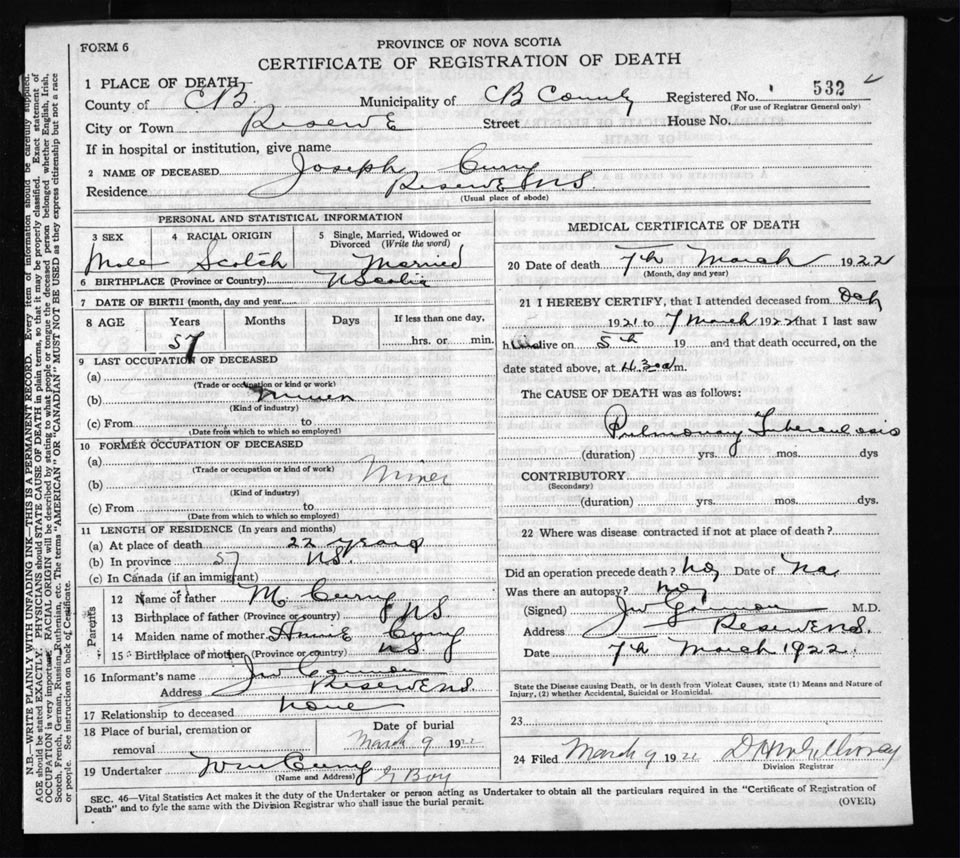 FORM 6
PROVINCE OF NOVA SCOTIA
CERTIFICATE OF REGISTRATION OF DEATH
1 PLACE OF DEATH
County of CB Municipality of CB County Registered No. 532
(For use of Registrar General only)
City or Town Reserve Street House No.
If in hospital or institution, give name
2 NAME OF DECEASED Joseph Curry
Residence Reserve NS.
(Usual place of abode)
PERSONAL AND STATISTICAL INFORMATION
3 SEX 4 RACIAL ORIGIN 5 Single, Married, Widowed or Divorced (Write the word)
Male Scotch Married
6 BIRTHPLACE (Province or Country) N Scotia
7 DATE OF BIRTH (month, day and year)
8 AGE Years Months Days If less than one day,
57 hrs. or min.
9 LAST OCCUPATION OF DECEASED
(a)
(Trade or occupation or kind or work)
(b)
(Kind of industry)
(c) From to
(Date from which to which so employed)
10 FORMER OCCUPATION OF DECEASED
(a)
(Trade or occupation or kind of work)
(b) Miner
(Kind of industry)
(c) From to
(Date from which to which so employed)
11 LENGTH OF RESIDENCE (In years and months)
(a) At place of death 22 years
(b) In province 57 NS.
(c) In Canada (if an immigrant)
Parents
12 Name of father M Curry
13 Birthplace of father (Province or country) NS
14 Maiden name of mother Annie Curry
15 Birthplace of mother (Province or country) NS
16 Informant's name
Address Reserve NS.
17 Relationship to deceased none
18 Place of burial, cremation or removal Date of burial
March 9 1922
19 Undertaker Wm Curry G Bay
(Name and Address)
MEDICAL CERTIFICATE OF DEATH
20 Date of death 7th March 1922
(Month, day and year)
21 I HEREBY CERTIFY, that I attended deceased from
1921 to 7 March 1922 that I last saw
h alive on 5th 19 and that death occurred, on the
date stated above, at m.
The CAUSE OF DEATH was as follows:
Pulmonary Tuberculosis
(duration) yrs. mos. dys
CONTRIBUTORY
(Secondary)
(duration) yrs. mos. dys.
22 Where was disease contracted if not at place of death?
Did an operation precede death? No Date of
Was there an autopsy? No
(Signed) M.D.
Address Reserve NS.
Date 7th March 1922.
State the Disease causing Death, or in death from Violent Causes, state (1) Means and Nature of Injury, (2) whether Accidental, Suicidal or Homicidal.
23
24 Filed March 9 1922
Division Registrar
SEC. 46—Vital Statistics Act makes it the duty of the Undertaker or person acting as Undertaker to obtain all the particulars required in the "Certificate of Registration of
Death" and to fyle the same with the Division Registrar who shall issue the burial permit. (OVER)
N.B.—WRITE PLAINLY WITH UNFADING INK—THIS IS A PERMANENT RECORD. Every item of information should be carefully supplied.
AGE should be stated EXACTLY. PHYSICIANS should STATE CAUSE OF DEATH in plain terms, so that it may be properly classified. Exact statement of
OCCUPATION is very important. RACIAL ORIGIN will be described by stating to what people or tongue the deceased person belonged whether English, Irish,
Scotch, French, German, Russian, Ruthenian, etc. The terms "AMERICAN" OR "CANADIAN" MUST NOT BE USED as they express citizenship but not a race
or people. See instructions on back of Certificate.